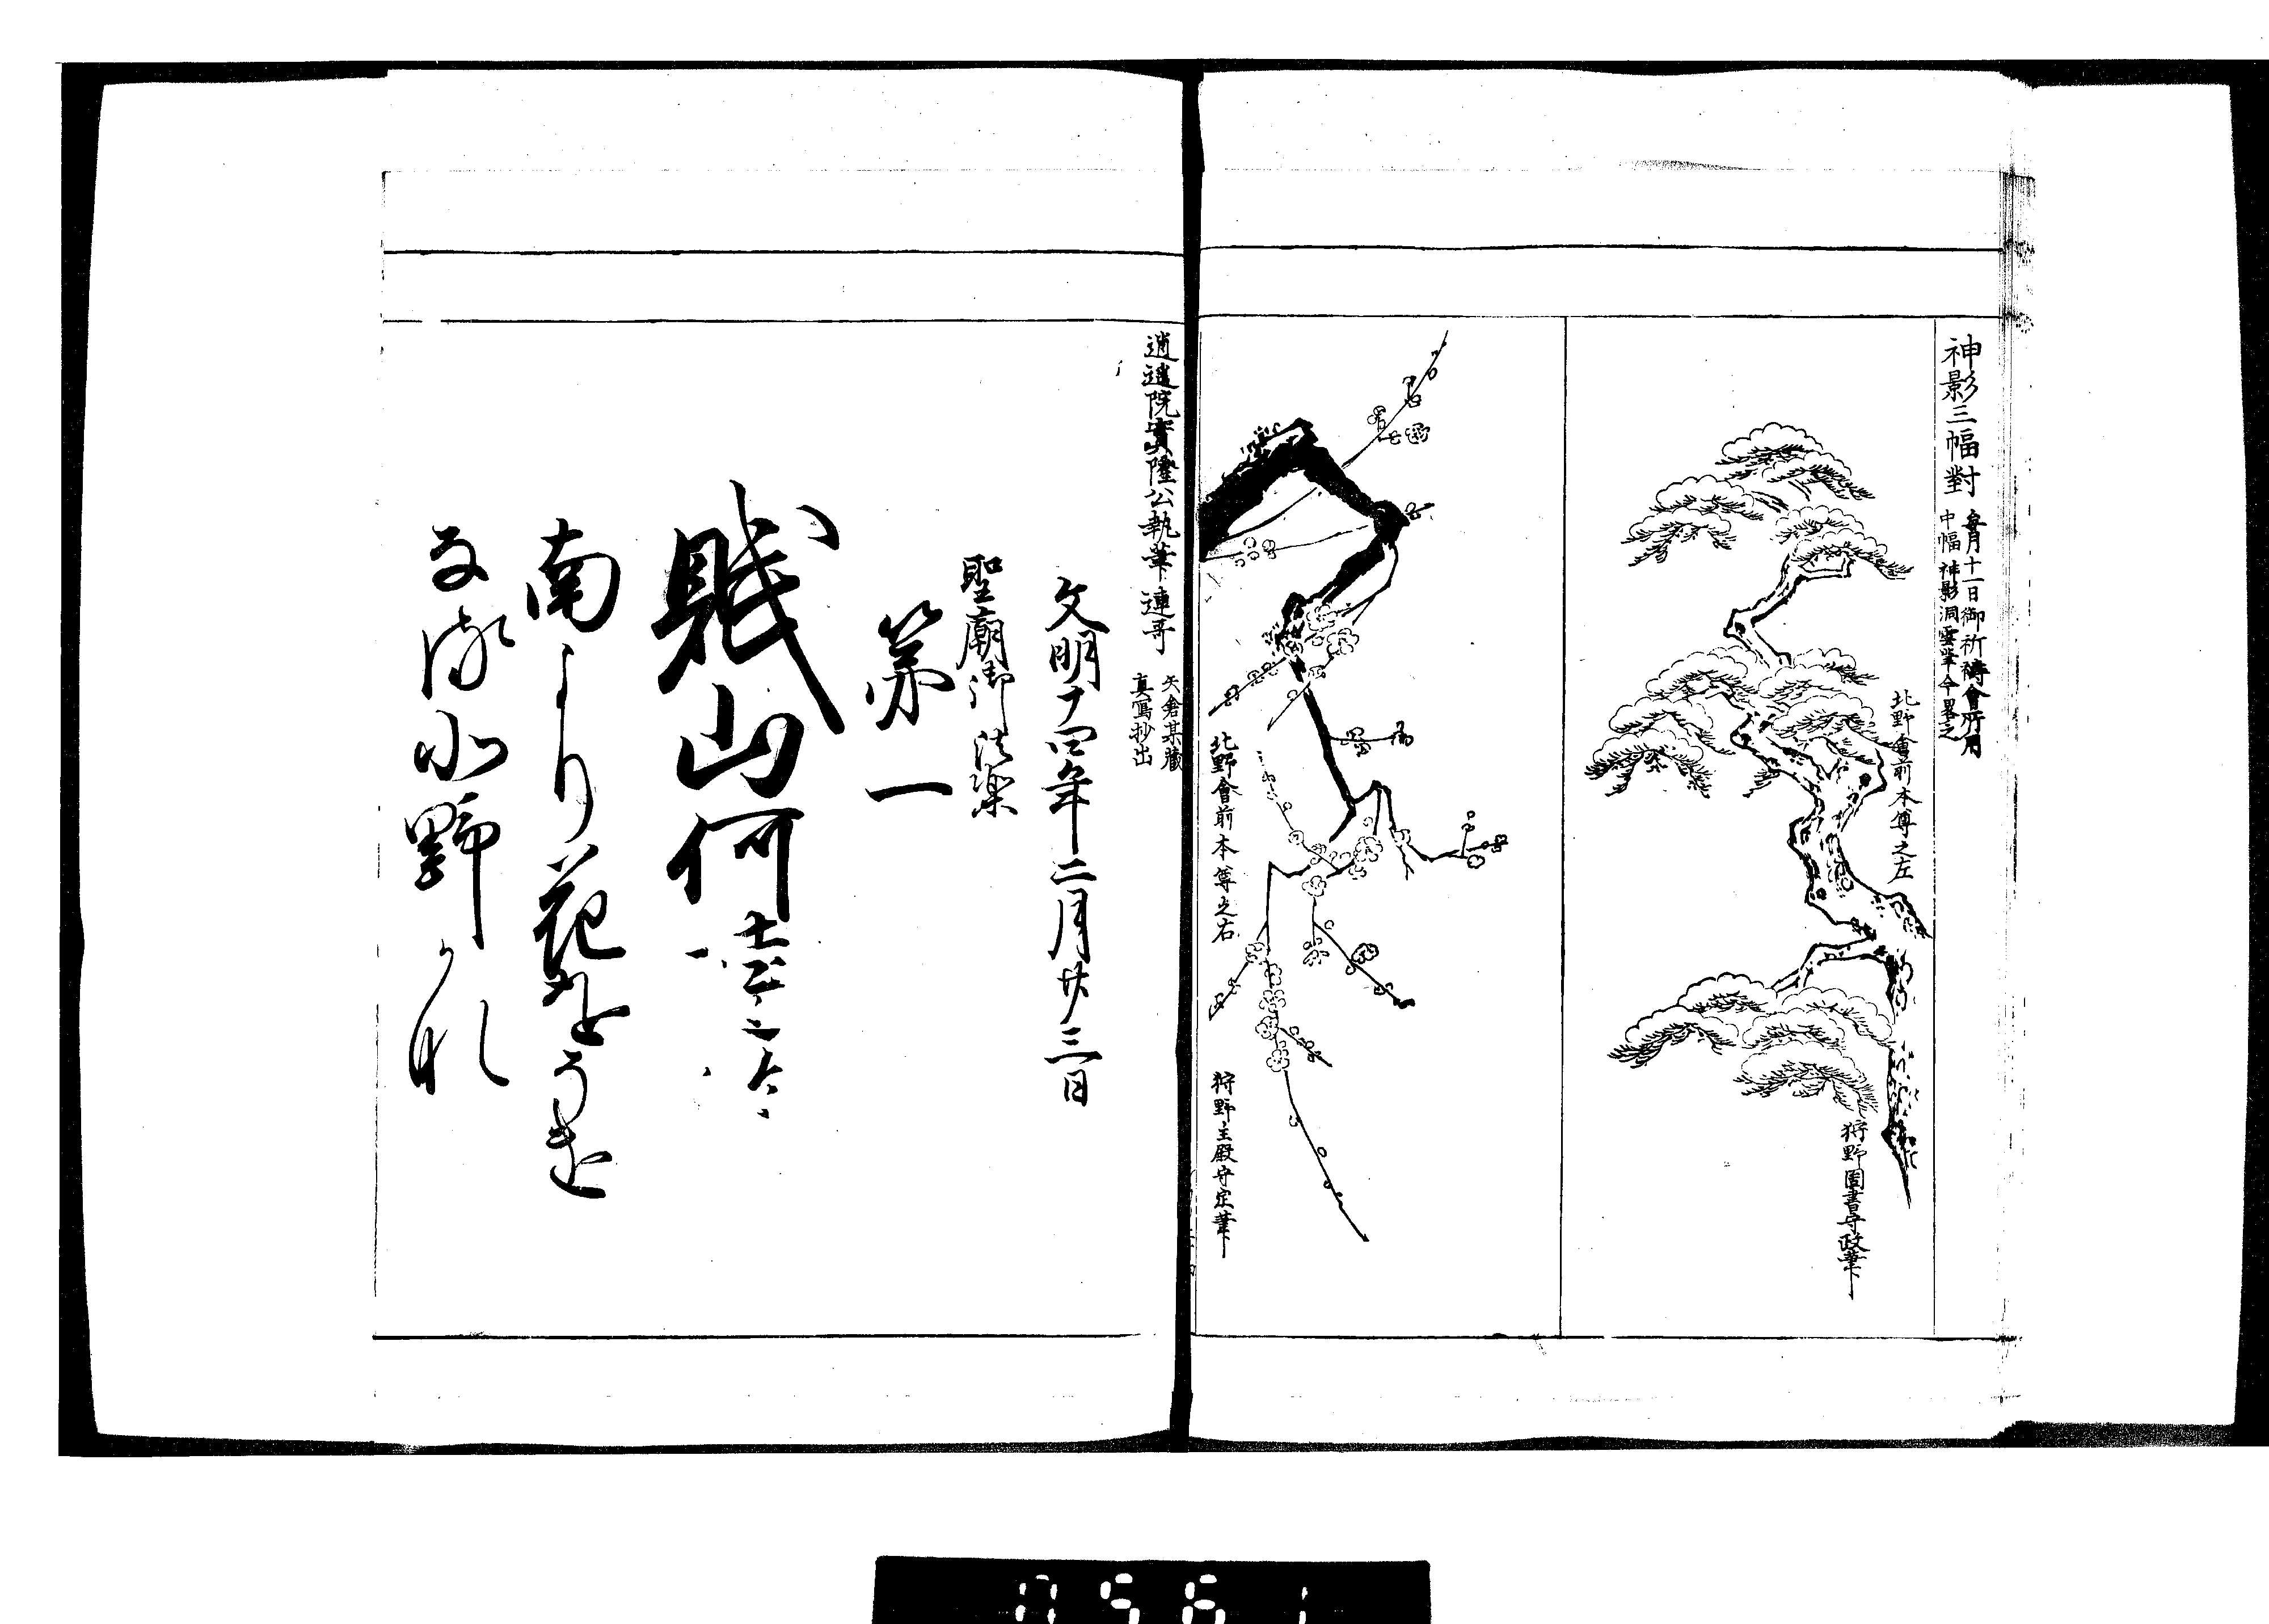 神影三幅對
毎月十一日御祈禱會所用
中幅神影洞雲筆今畧之
北野會前本尊之左
狩野圖書守政筆
北野會前本尊之右
狩野主殿守定筆
逍遙院實隆公執筆連哥
矢倉某藏
真寫抄出
文明十四年二月廿三日
聖廟御法楽
第一
賦山何
南より花を
小野
0561